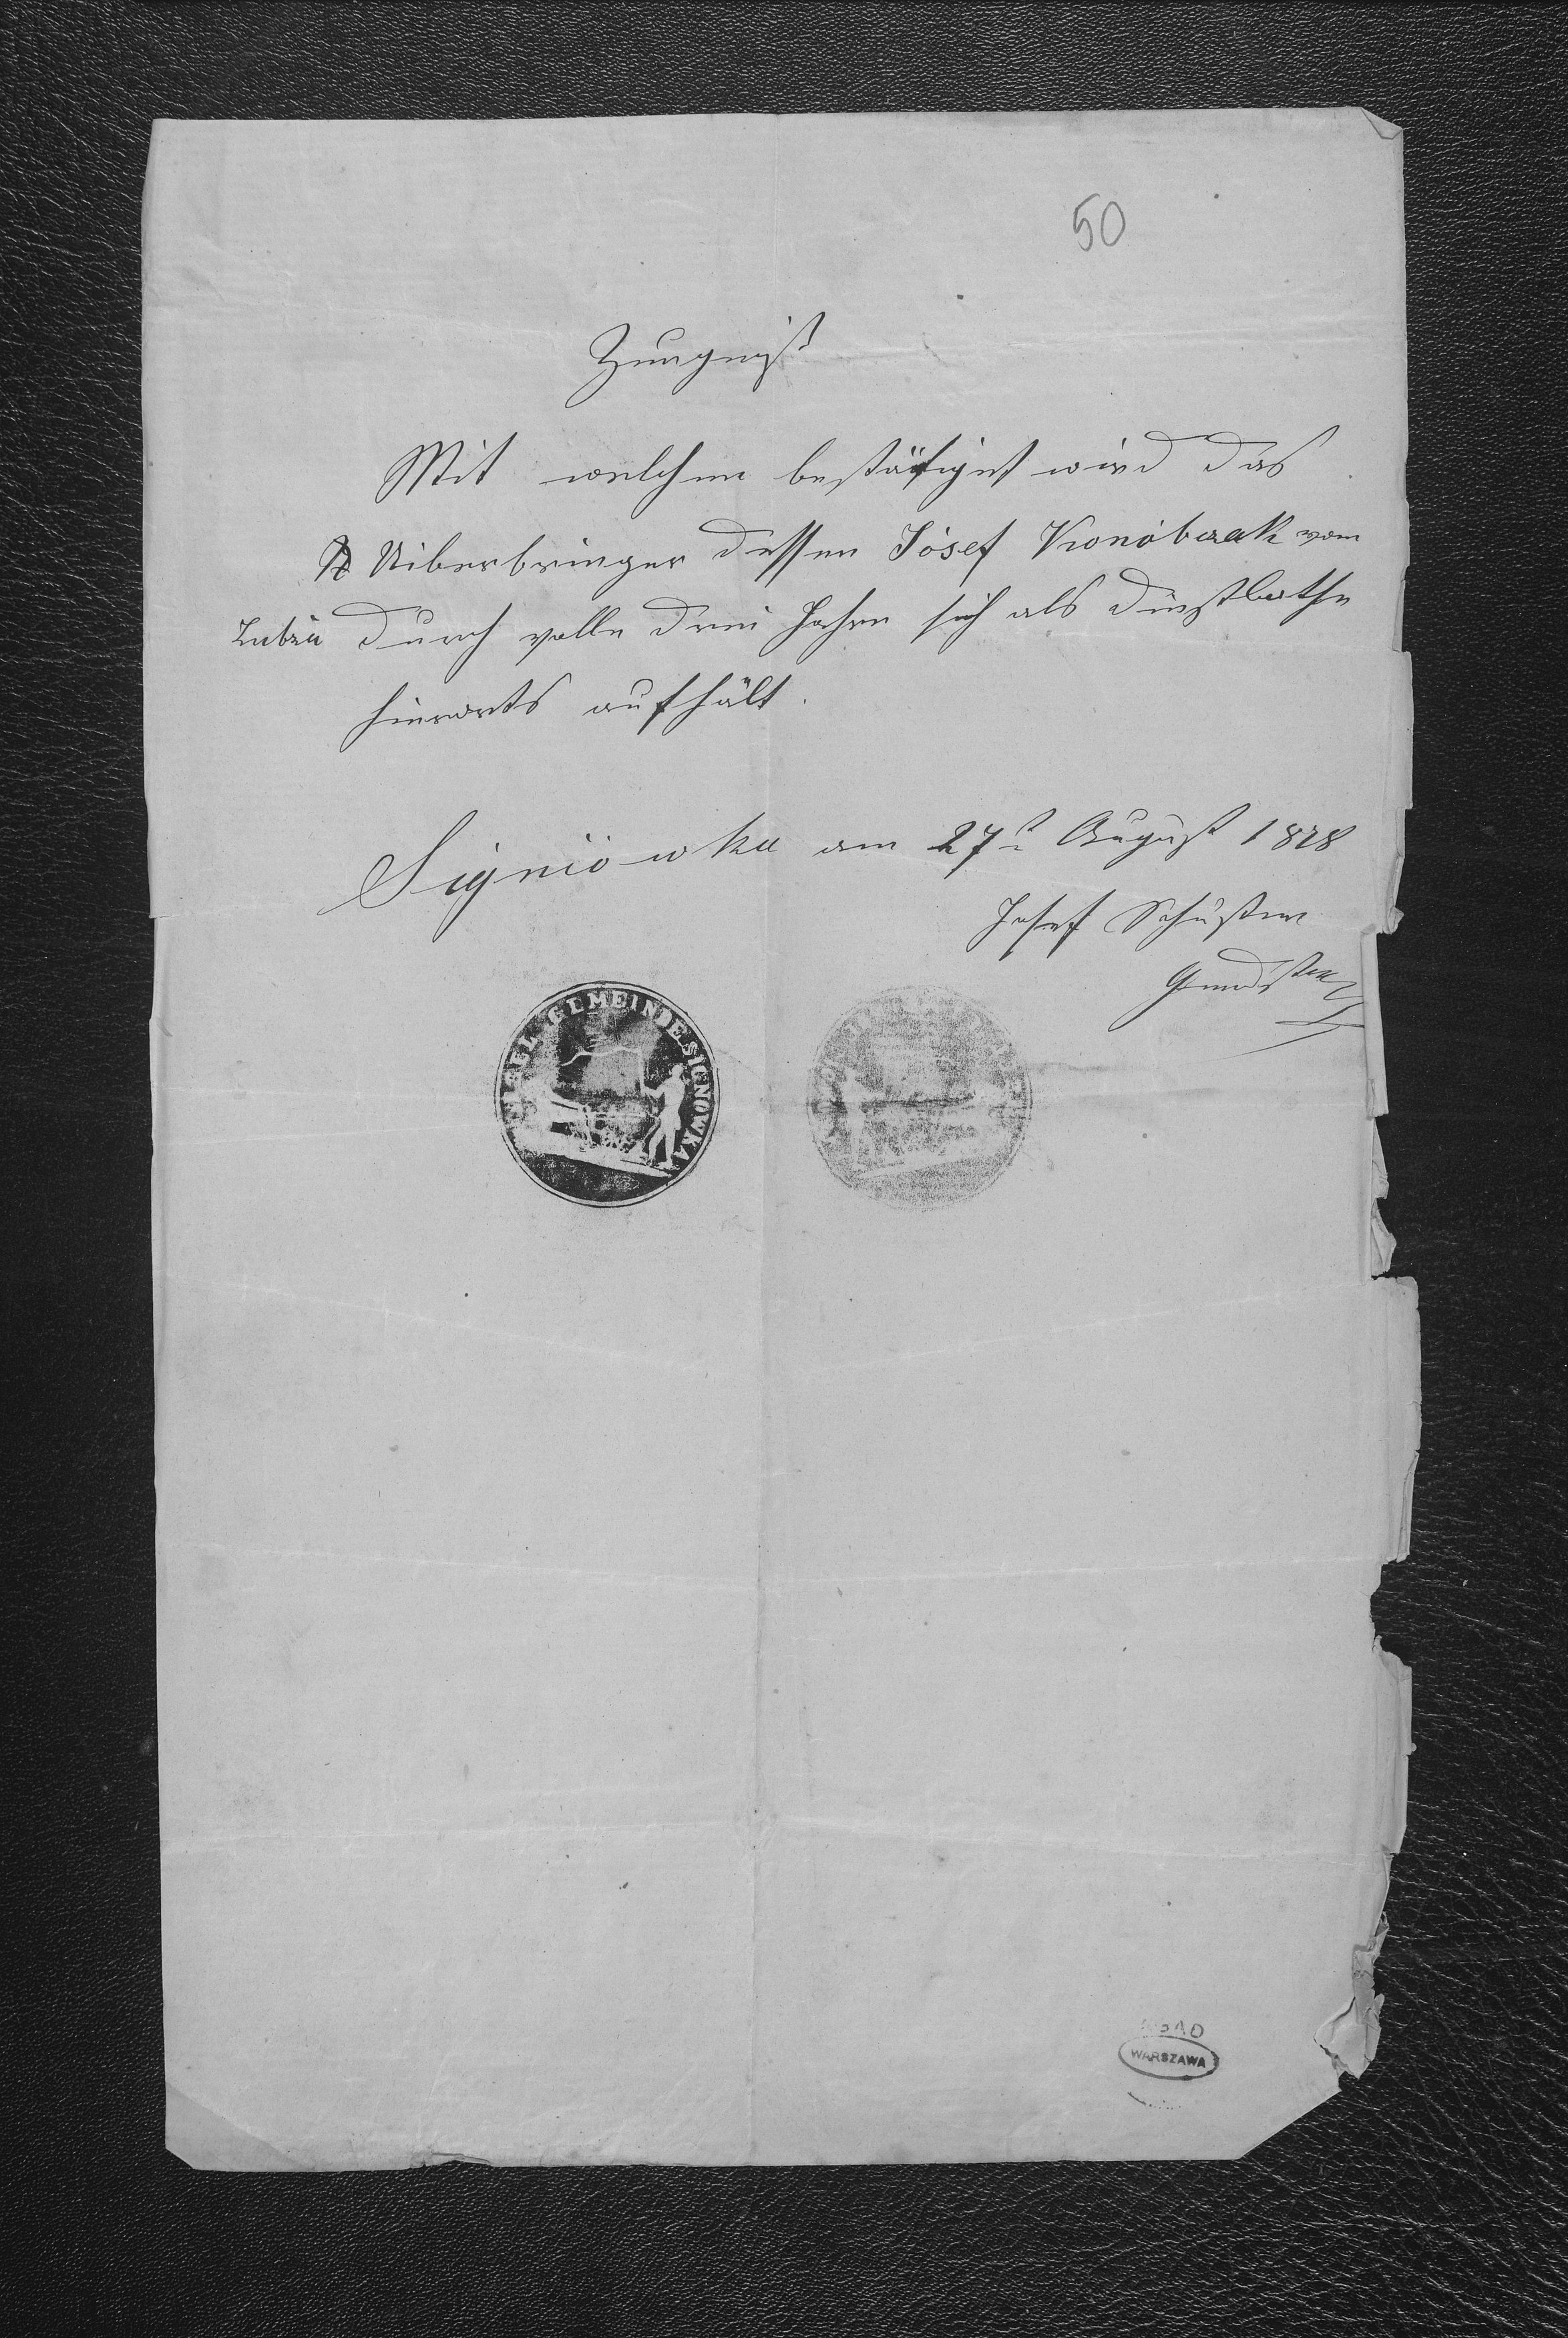 50
Zeugniß
Mit welchem bestätiget wird das
Uiberbringer dessen Jósef Kronóbczak vom
Lubzia durch volle drei Jahre sich als dinstbothe
hierorts aufhält.
Signiówka am 27t August 1878
Josef Schuster
SIGEL GEMEINDE SIGNOWKA
AGAD
WARSZAWA